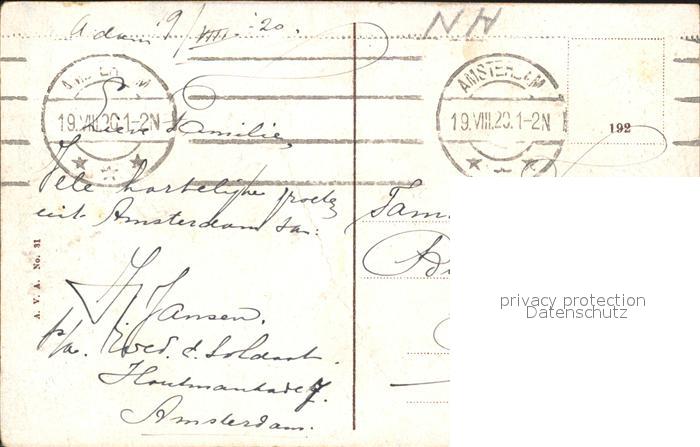 A'dam 19/VIII-20.
NH
AMSTERDAM
19.VIII.20.1-2N
AMSTERDAM
19.VIII.20.1-2N
192
Lieve Familie,
Vele hartelijke groeten
uit Amsterdam van:
Jansen.
p/a. Wed. d. Soldaat.
Houtmankade 7.
Amsterdam.
A. V. A. No. 31
Fam.
privacy protection
Datenschutz